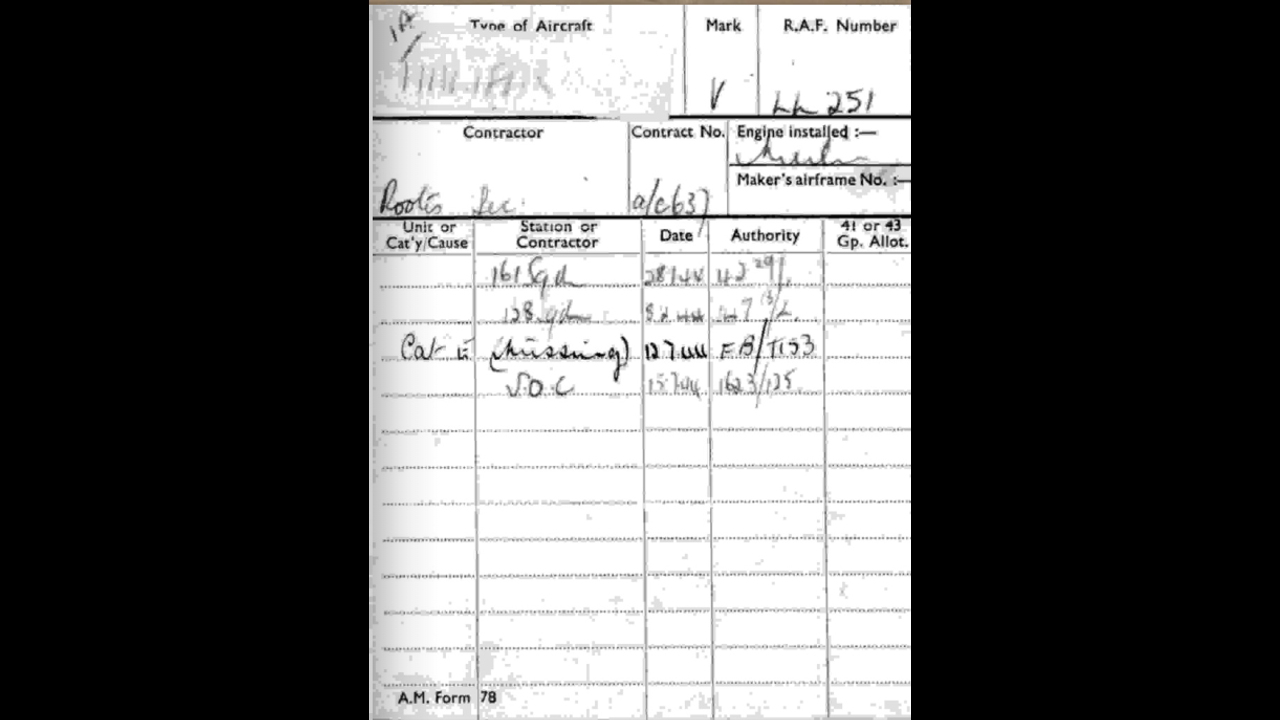 Type of Aircraft Mark R.A.F. Number
HALIFAX
V LL 251
Contractor Contract No. Engine installed :—
Merlin
Maker's airframe No. :—
Rootes Sec. a/c637
Unit or Cat'y/Cause Station or Contractor Date Authority 41 or 43 Gp. Allot.
161 Sqd 28 1 44 42 29/
138 Sqd 8 2 44
Cat E (Missing) 12 7 44 FB/7153
S.O.C 15 7 44 1623/125
A.M. Form 78